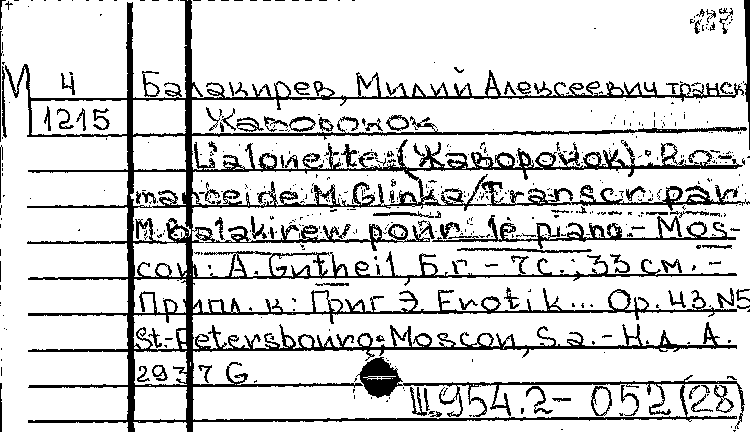 137
М 4 Балакирев, Милий Алексеевич транск
1215 Жаворонок
L'alouette (Жаворонок): Ro-
mance de M. Glinka / Transcr. par
M. Balakirew pour le piano. - Mos-
cou: A. Gutheil, Б.г. - 7 с.; 33 см. -
Припл. к: Григ Э. Erotik... Op. 43, N5
St.-Petersbourg; Moscou, S.a. - Н.д. A.
2937 G.
Ш954.2- 052 (28)